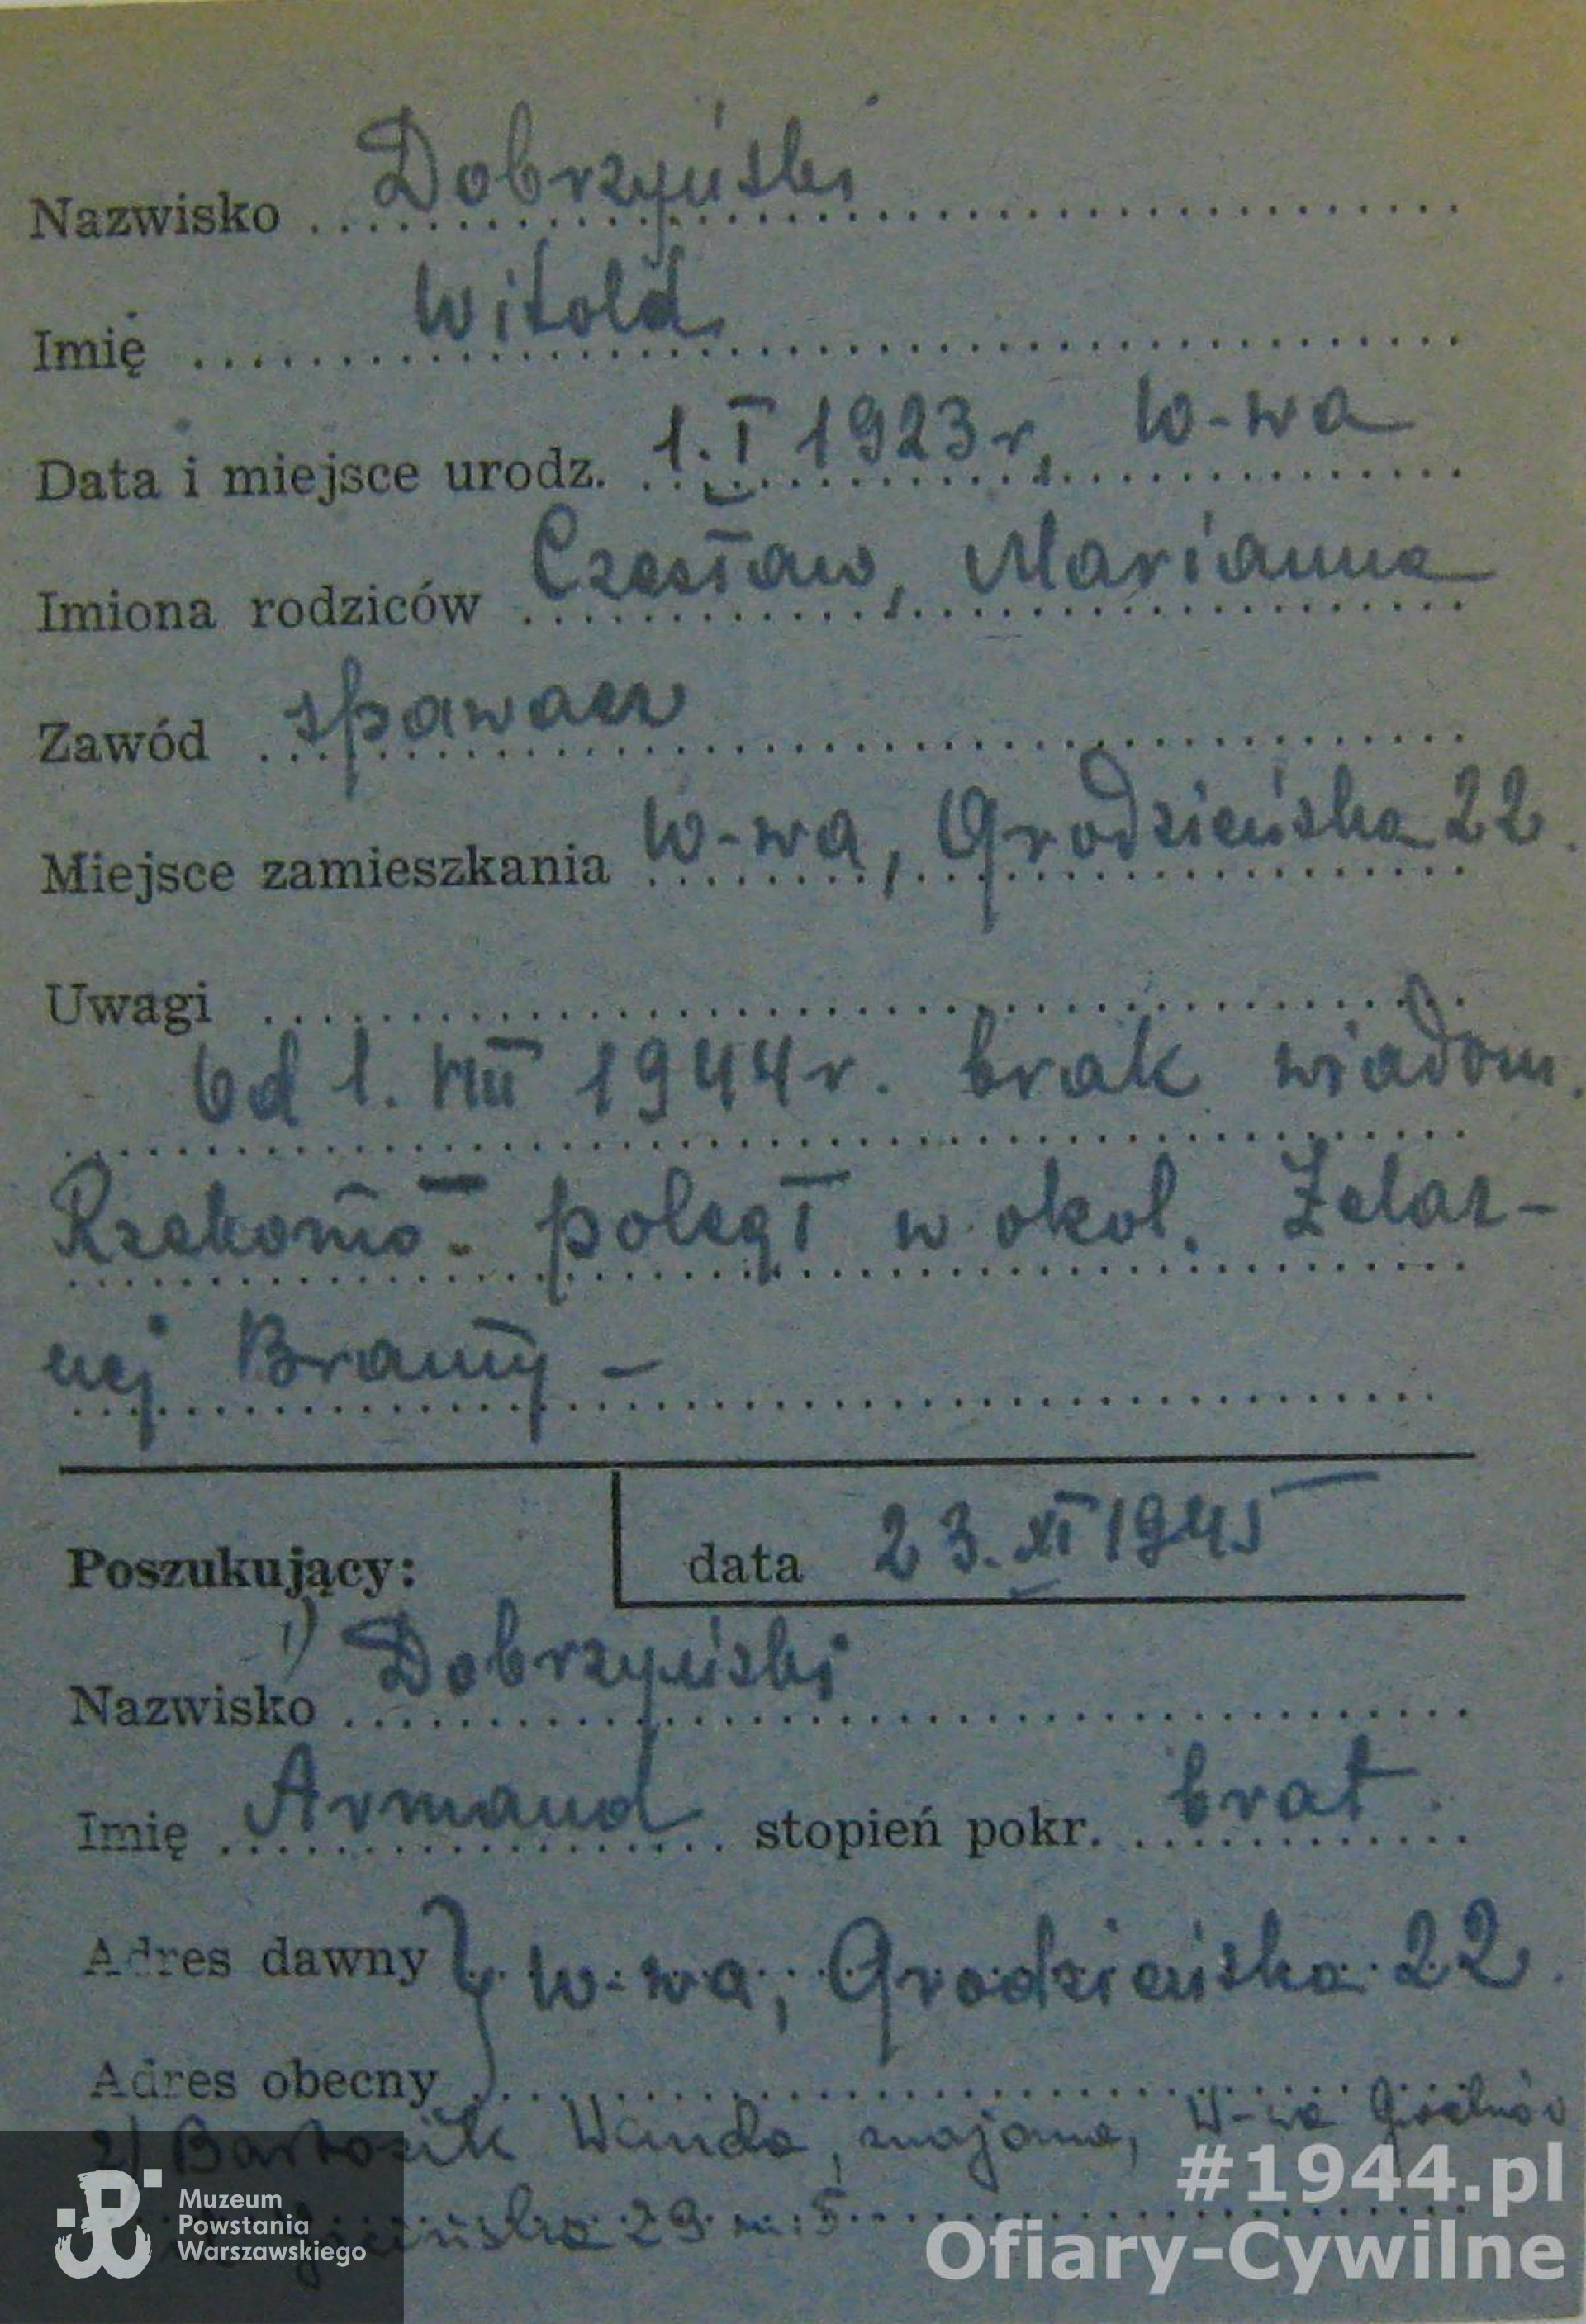 Nazwisko Dobrzyński
Imię Witold
Data i miejsce urodz. 1. I 1923 r, W-wa
Imiona rodziców Czesław, Marianna
Zawód spawacz
Miejsce zamieszkania W-wa, Grodzieńska 22.
Uwagi
Od 1. VIII 1944 r. brak wiadom.
Rzekomo - poległ w okol. Żelaz-
nej Bramy -
Poszukujący: data 23. XI 1945
1)
Nazwisko Dobrzyński
Imię Armand stopień pokr. brat.
Adres dawny } W-wa, Grodzieńska 22.
Adres obecny
2) Bartosik Wanda, znajoma, W-wa
29 m. 5
Muzeum
Powstania
Warszawskiego
#1944.pl
Ofiary-Cywilne